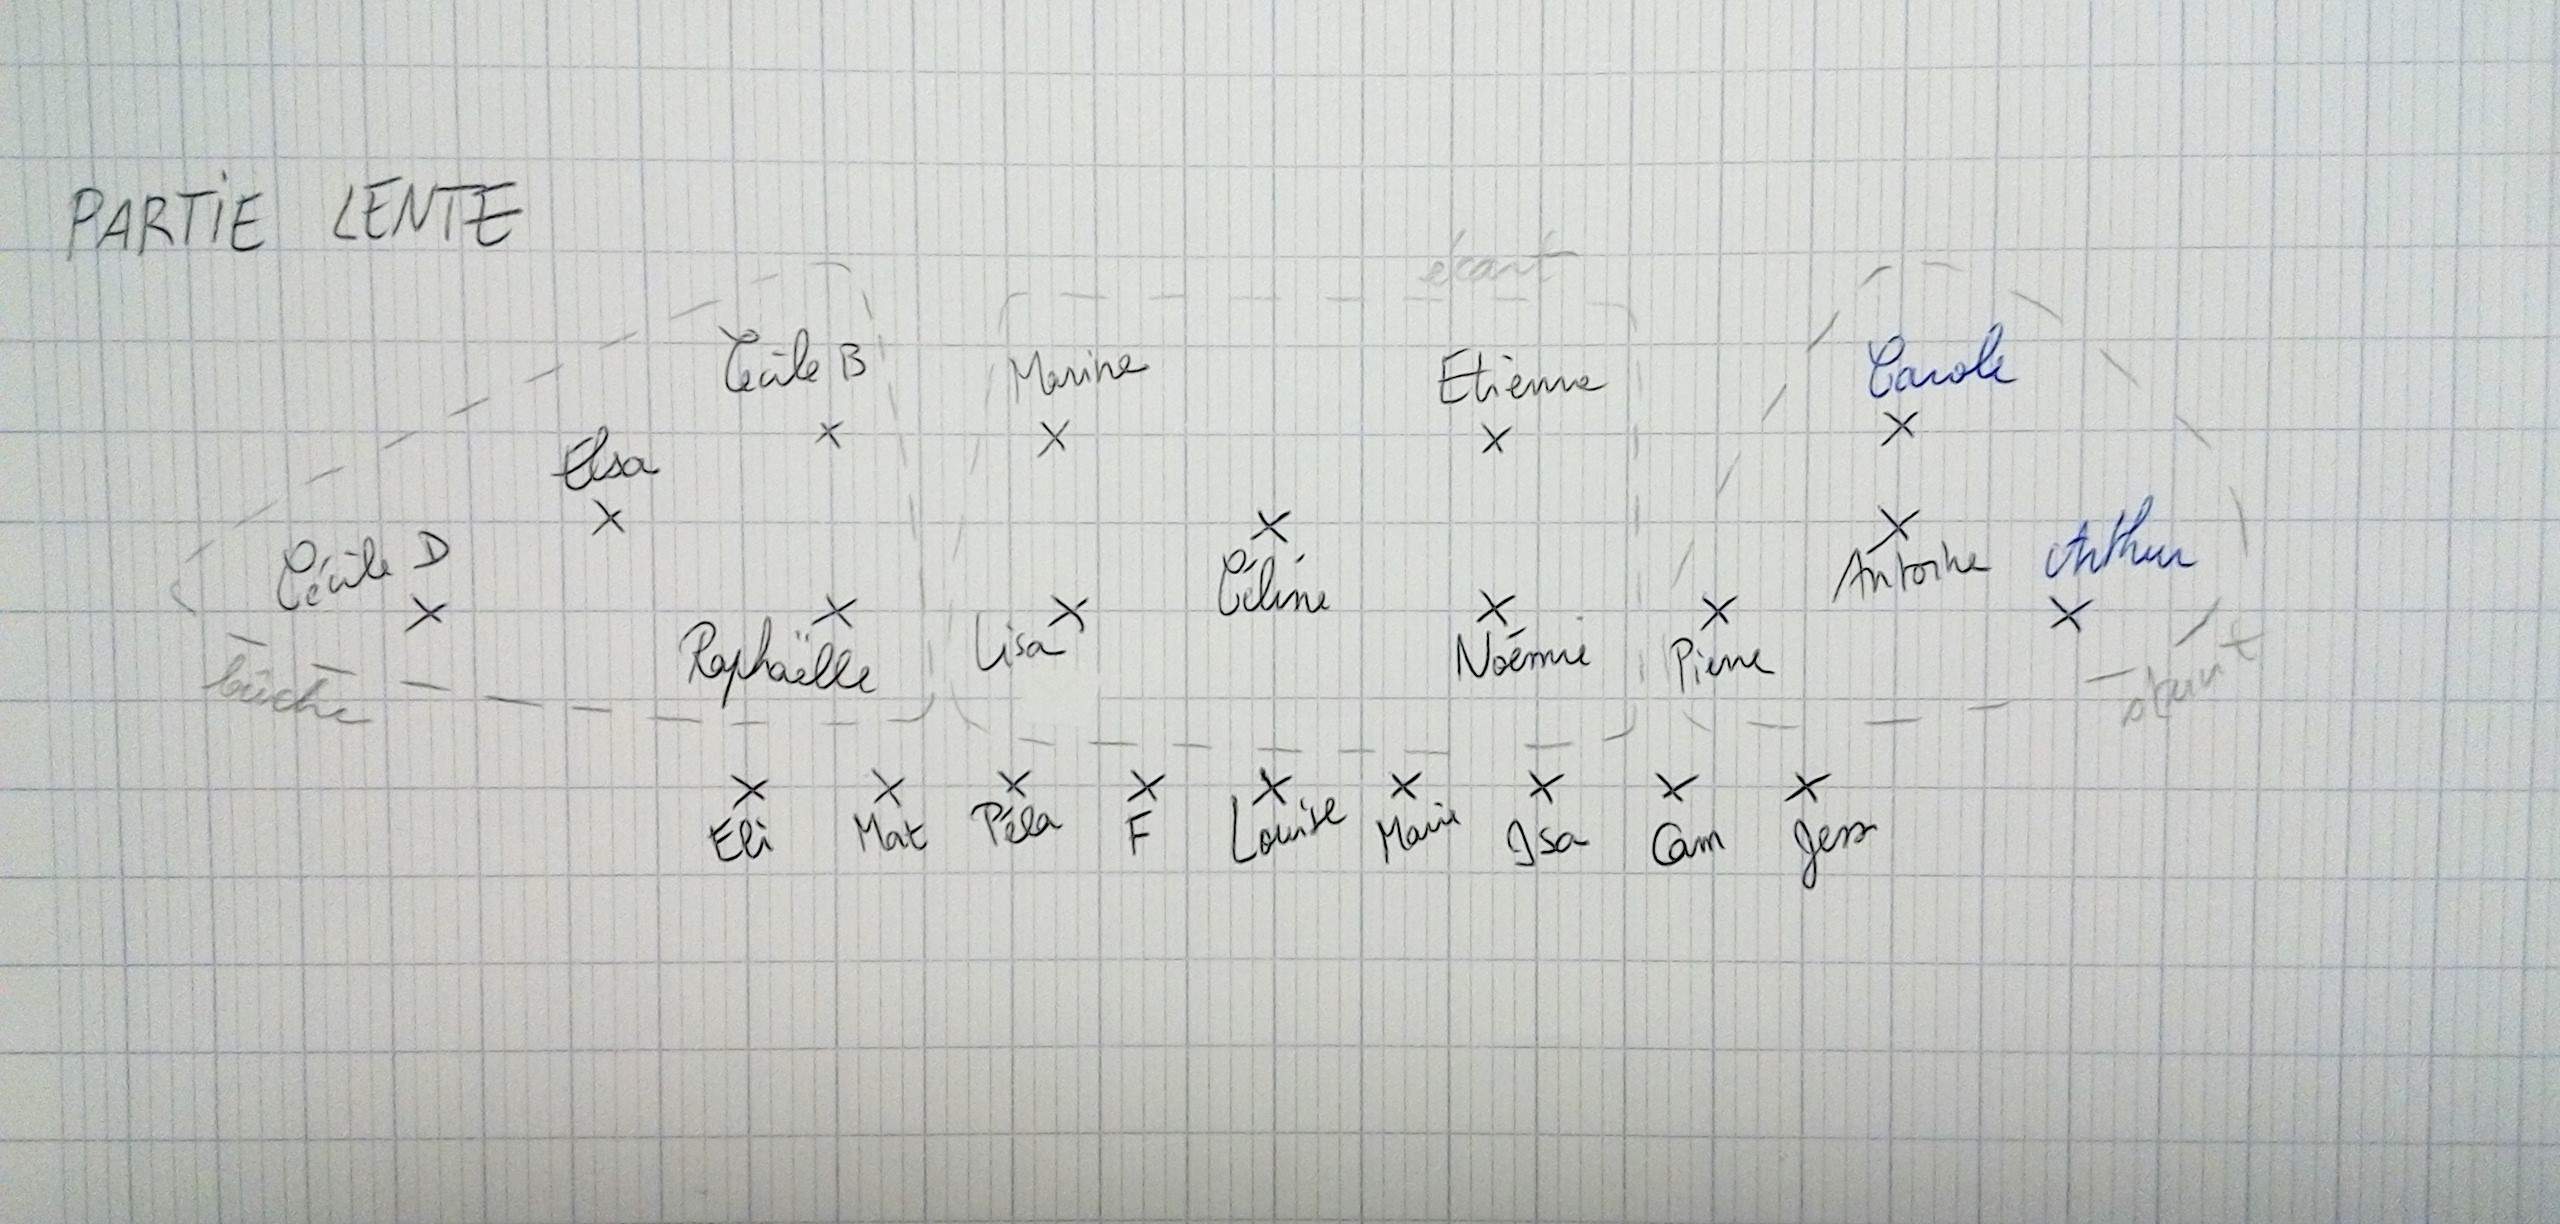 PARTIE LENTE
écart
Cécile B Marine Etienne Carole
Elsa
Cécile D Céline Antoine Arthur
Raphaëlle Lisa Noémie Pierre
bûche stunt
Eli Mat Péla F Louise Marie Isa Cam Jess